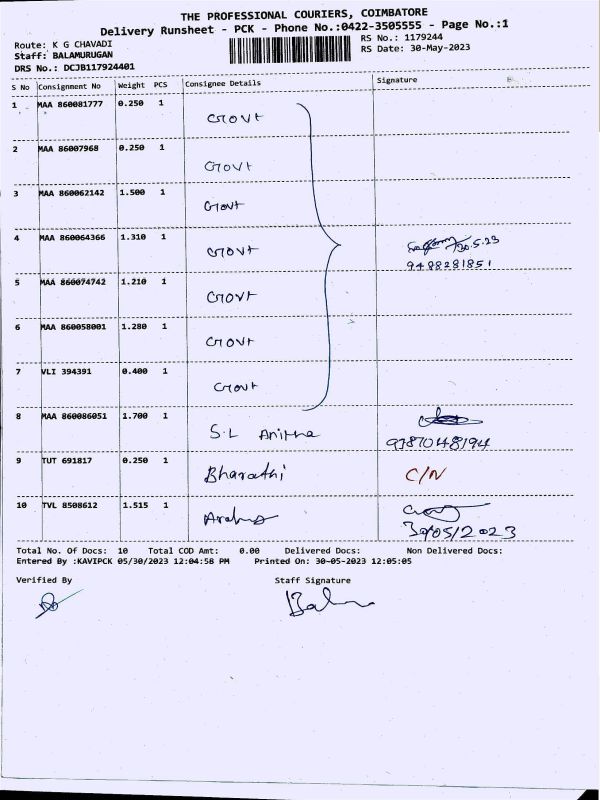 THE PROFESSIONAL COURIERS, COIMBATORE
Delivery Runsheet - PCK - Phone No.:0422-3505555 - Page No.:1
Route: K G CHAVADI
RS No.: 1179244
Staff: BALAMURUGAN
RS Date: 30-May-2023
DRS No.: DCJB117924401
S No Consignment No Weight PCS Consignee Details Signature
1 MAA 860081777 0.250 1 Govt
2 MAA 86007968 0.250 1 Govt
3 MAA 860062142 1.500 1 Govt
4 MAA 860064366 1.310 1 Govt 30.5.23
9488281851
5 MAA 860074742 1.210 1 Govt
6 MAA 860058001 1.280 1 Govt
7 VLI 394391 0.400 1 Govt
8 MAA 860086051 1.700 1 S.L Anitha
9787048194
9 TUT 691817 0.250 1 Bharathi C/N
10 TVL 8508612 1.515 1
30/05/2023
Total No. Of Docs: 10 Total COD Amt: 0.00 Delivered Docs: Non Delivered Docs:
Entered By :KAVIPCK 05/30/2023 12:04:58 PM Printed On: 30-05-2023 12:05:05
Verified By Staff Signature
Bala